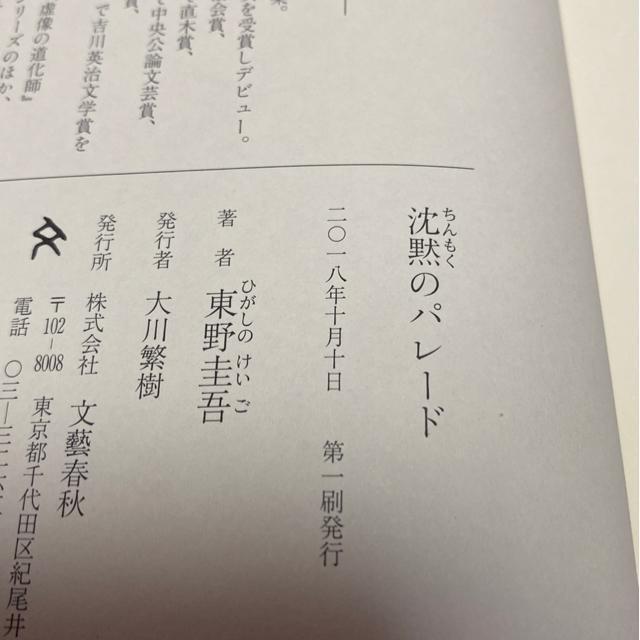 を受賞しデビュー。
会賞、
で直木賞、
で中央公論文芸賞、
賞、
で吉川英治文学賞を
虚像の道化師』
リーズのほか、
ちんもく
沈黙のパレード
二〇一八年十月十日 第一刷発行
ひがしの けいご
著者 東野圭吾
発行者 大川繁樹
発行所 株式会社 文藝春秋
〒102-8008 東京都千代田区紀尾井
電話 〇三―三二六